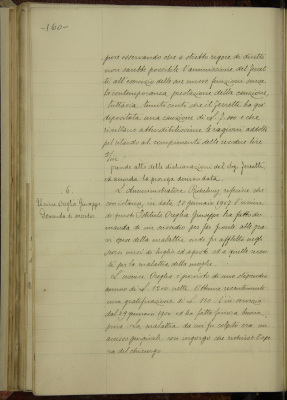 -160-
però osservando che a stretto rigore di diritto
non sarebbe possibile l'ammissione del Jorelli
all'esercizio delle sue nuove funzioni senza
la contemporanea prestazione della cauzione,
tuttavia, tenuto conto che il Jorelli ha già
depositata una cauzione di £. 500 e che
risultano attendibilissime le ragioni addotte
pel ritardo al compimento della
prende atto delle dichiarazioni del Sig. Jorelli
ed accorda la proroga domandata.
6.
Usciere Oreglia Giuseppe
Domanda di sussidio
L'Amministratore riferisce che
con istanza in data 20 gennaio 1905 l'usciere
di questo Istituto Oreglia Giuseppe ha fatto do-
manda di un sussidio per far fronte alle gra-
vi spese della malattia onde fu afflitto negli
scorsi mesi di luglio ed agosto ed a quelle
per la malattia della moglie.
L'usciere Oreglia è provvisto di uno stipendio
annuo di £. 1200 nette. Ottenne recentemente
una gratificazione di £. 110. È in servizio
dal 29 gennaio 1900 ed ha fatto finora buona
prova. La malattia da cui fu colpito era un
con ingorgo che richiese l'ope-
ra del chirurgo